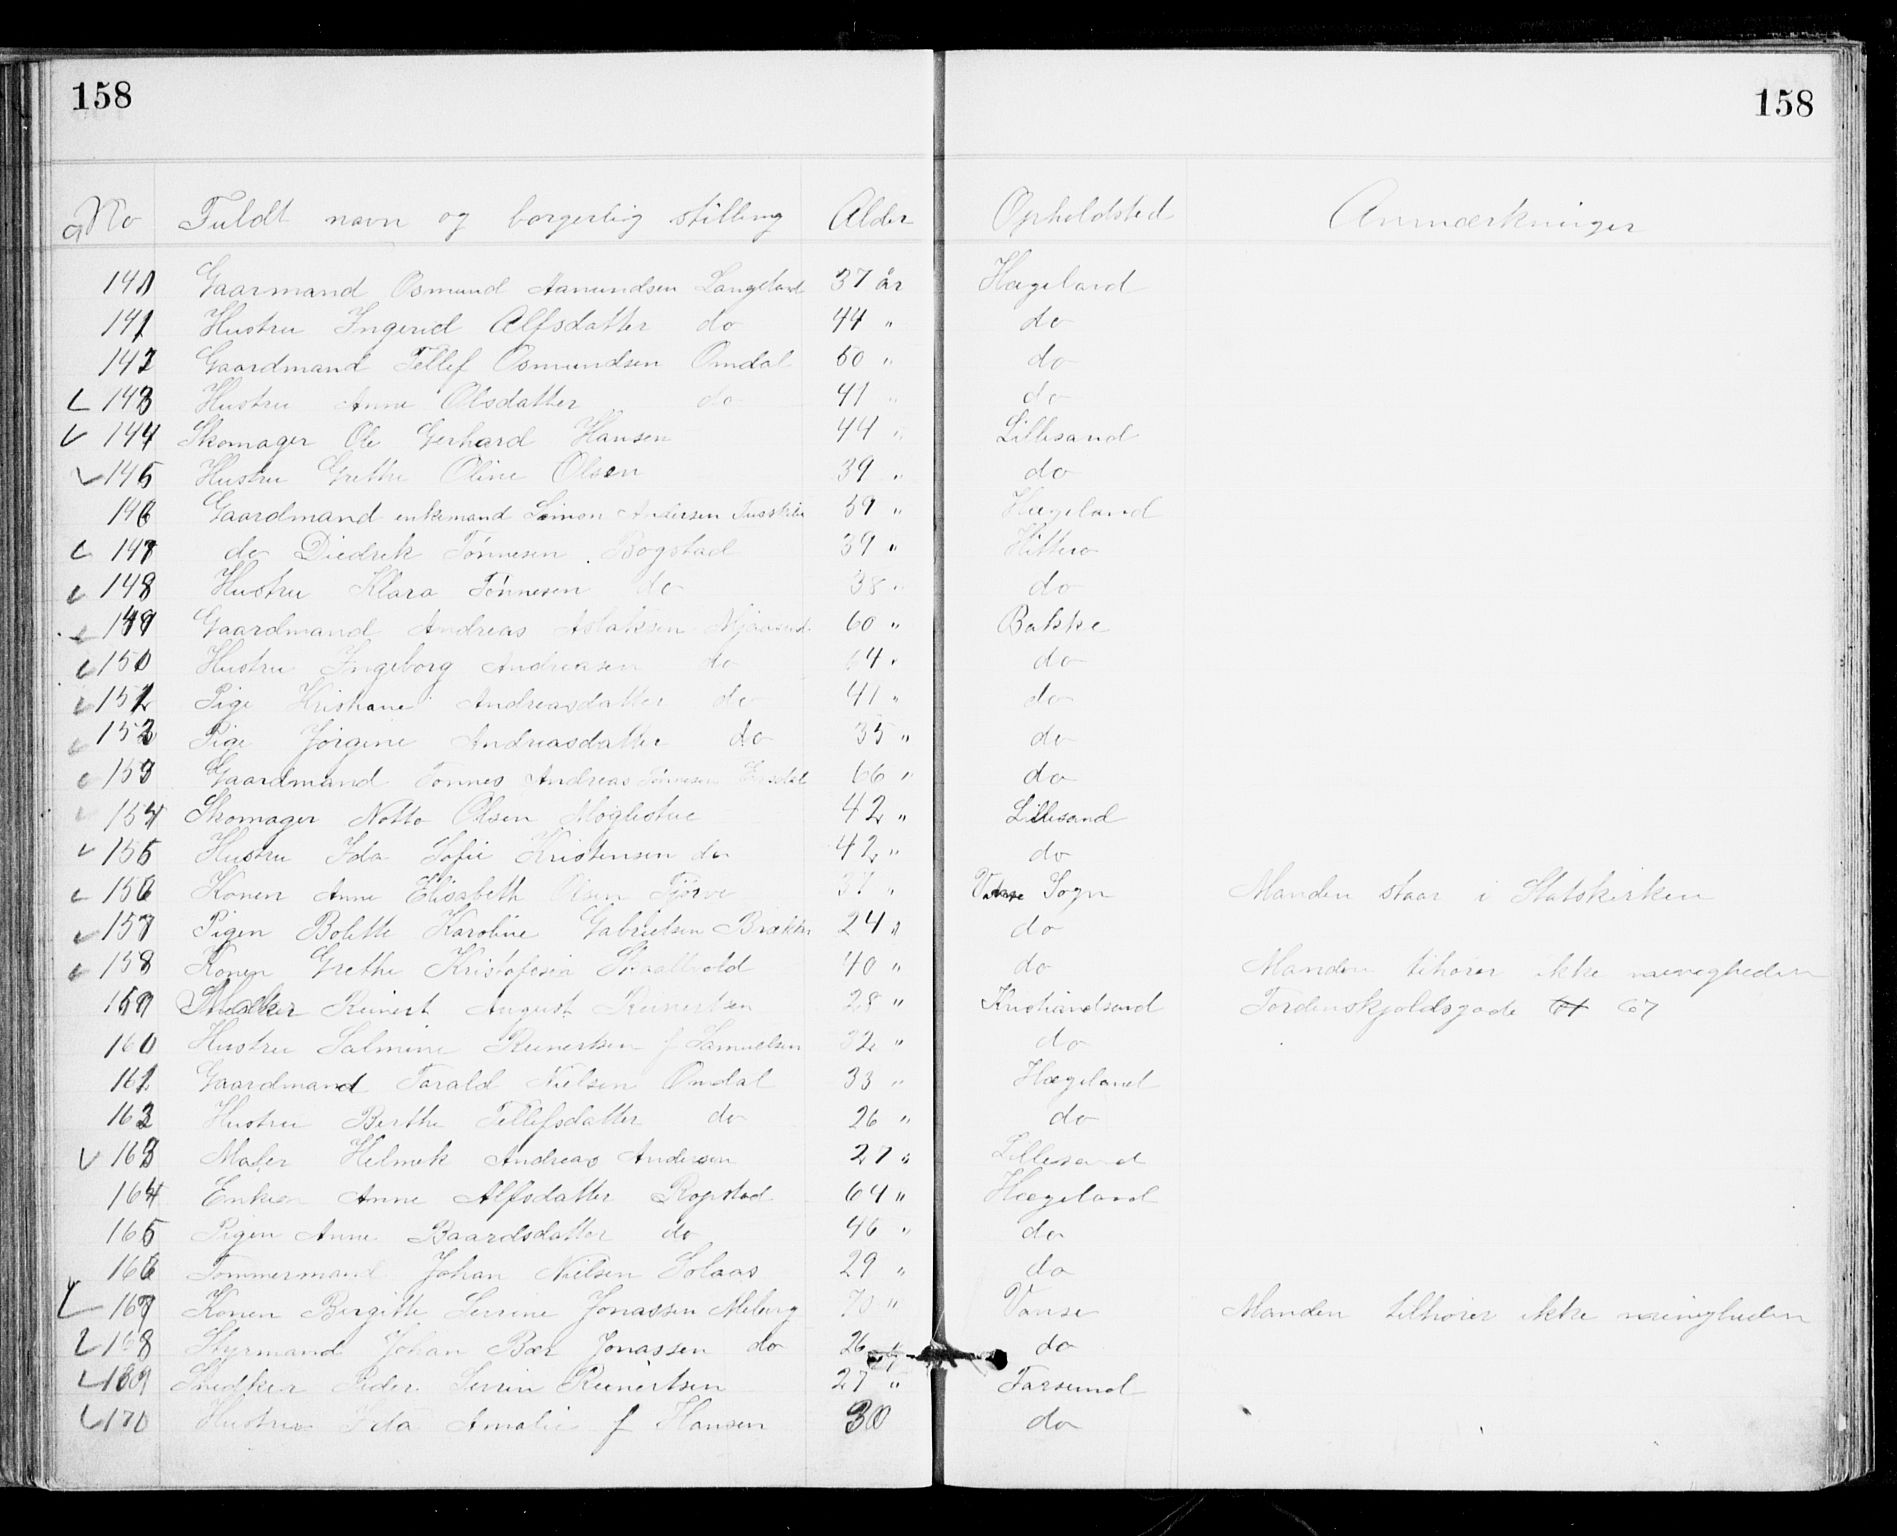 158
158
No Fuldt navn og borgerlig stilling Alder Opholdsted Anmærkninger
140 Gaarmand Osmund Aanundsen Langeland 37 år Hægeland
141 Hustru Ingerid Alfsdatter do 44 " do
142 Gaardmand Tellef Osmundsen Omdal 50 " do
143 Hustru Anne Olsdatter do 41 " do
144 Skomager Ole Gerhard Hansen 44 " Lillesand
145 Hustru Grethe Oline Olsen 39 " do
146 Gaardmand enkemand Simon Andersen 59 " Hægeland
147 do Diedrik Tönnesen Bogstad 39 " Hitterø
148 Hustru Klara Tönnesen do 38 " do
149 Gaardmand Andreas Aslaksen 60 " Bakke
150 Hustru Ingeborg Andreasen do 64 " do
151 Pige Kristiane Andreasdatter do 41 " do
152 Pige Jörgine Andreasdatter do 35 " do
153 Gaardmand Tönnes Andreas Tönnesen 66 " do
154 Skomager Notto Olsen Möglestue 42 " Lillesand
155 Hustru Ida Sofie Kristensen do 42 " do
156 Konen Anne Elisabeth Olsen Tjörve 37 " Vanse Sogn Manden staar i Statskirken
157 Pigen Bolette Karoline Gabrielsen 24 " do
158 Konen Grethe Kristofesen 40 " do Manden tihörer ikke menigheden
159 Reinert August Reinertsen 28 " Kristiandsand Tordenskjoldsgade 61 67
160 Hustru Salmine Reinertsen f Samuelsen 32 " do
161 Gaardmand Tarald Nielsen Omdal 33 " Hægeland
162 Hustru Berthe Tellefsdatter do 26 " do
163 Maler Helmik Andreas Andersen 27 " Lillesand
164 Enken Anne Alfsdatter Ropstad 64 " Hægeland
165 Pigen Anne Baardsdatter do 46 " do
166 Tömmermand Johan Nielsen Solaas 29 " do
167 Konen Birgitte Serine Jonassen Meberg 70 " Vanse Manden tilhörer ikke menigheden
168 Styrmand Johan Bær Jonassen do 26 " do
169 Snedker Peder Serin Reinertsen 27 " Farsund
170 Hustru Ida Amalie f Hansen 30 do